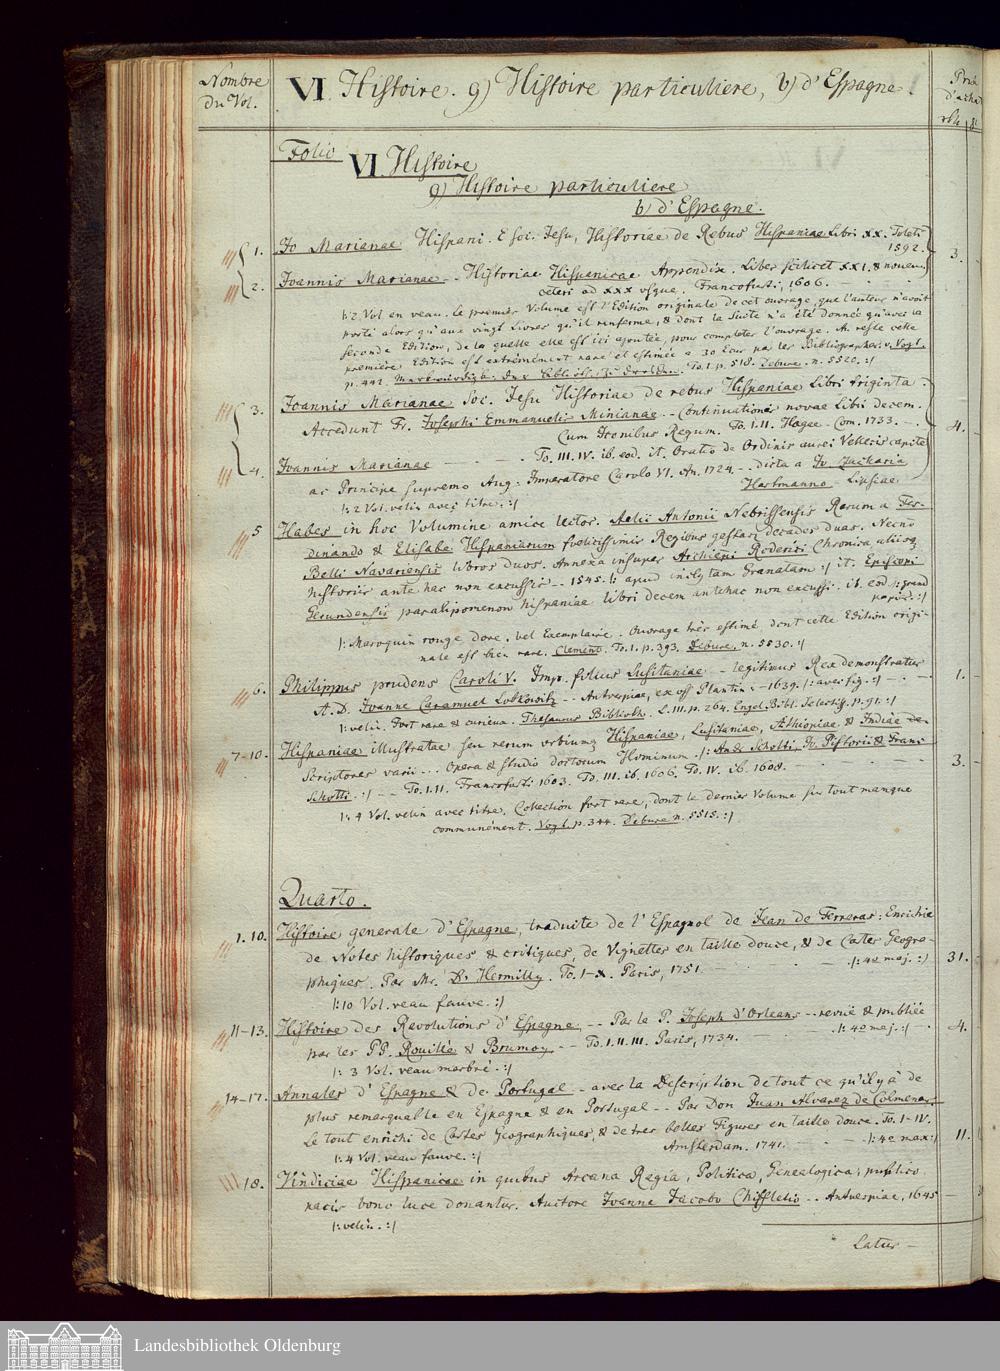 Nombre
du Vol.
VI Histoire. g) Histoire particuliere, b) d'Espagne.
Prix
d'achat
rthl
Folio
VI. Histoire
g) Histoire particuliere
b) d'Espagne.
1. Jo Marianae Hispani. E Soc. Jesu, Historiae de Rebus Hispaniae Libri XX. Toleti
1592.
3.
2. Joannis Marianae -- Historiae Hispanicae Appendix. Liber scilicet XXI. & novem
ceteri ad XXX usque. Francofurti, 1606.
|: 2 Vol en veau. le premier Volume est l'Edition originale de cet ouvrage, que l'auteur n'avoit
porté alors qu'aux vingt Livres qu'il renferme, & dont la suite n'a été donnée qu'avec la
seconde Edition, de la quelle elle est ici ajoutée, pour completer l'ouvrage. Au reste cette
première Edition est extrêmement rare et estimée a 30 Ecus par les Bibliographes. v. Vogt.
p. 442. To. 1. p. 518. Debure. n. 5520. :|
3. Joannis Marianae Soc. Jesu Historiae de rebus Hispaniae Libri triginta.
Accedunt Fr. Josephi Emmanuelis Minianae -- Continuationis novae Libri decem.
4.
Cum Iconibus Regum. To. I. II. Hagae-Com. 1733.
4. Joannis Marianae To. III. IV. ib. eod. it. Oratio de Ordinis aurei Velleris capite
ac Principe supremo Aug: Imperatore Carolo VI. An. 1724. -- dicta a Jo. Zacharia
Hartmanno Lipsiae
|: 2 Vol. velin avec titre. :|
5 Habes in hoc Volumine amice lector. Aelii Antonii Nebrissensis Rerum a Fer-
dinando & Elisabe Hispaniarum foelicissimis Regibus gestar. decades duas. Necno
Belli Navariensis libros duos. Annexa insuper Archiepi Roderici Chronica, aliisq
historiis ante hac non excussis -- 1545. |: apud inclytam Granatam :| it. Episcopi
Gerundensis paralipomenon hispaniae libri decem antehac non excussi. ib. eod |: grand
papier. :|
|: Maroquin rouge doré, bel Exemplaire. Ouvrage très estimé dont cette Edition origi-
nale est bien rare. Clement. To. 1. p. 393. Debure. n. 5530. :|
6. Philippus prudens Caroli V. Imp. filius Lusitaniae -- legitimus Rex demonstratus
A. D. Joanne Caramuel Lobkowitz -- Antverpiae, ex off Plantin. -- 1639. |: avec fig. :|
1.
|: velin. Fort rare & curieux. Thesaurus Biblioth. L. III. p. 264. Engel Bibl. Selectiss. p. 91. :|
7-10. Hispaniae illustratae, seu rerum urbiumq Hispaniae, Lusitaniae, Aethiopiae & Indiae
Scriptores varii... Opera & studio doctorum Hominum. |: And. Schotti, Jo. Pistorii & Franc
3.
Schotti. :| -- To. I. II. Francofurti 1603. To. III. ib. 1606. To. IV. ib. 1608.
|: 4 Vol. velin avec titre. Collection fort rare, dont le dernier Volume sur tout manque
communément. Vogt. p. 344. Debure n. 5515. :|
Quarto.
1.10. Histoire generale d'Espagne, traduite de l'Espagnol de Jean de Ferreras: Enrichie
de Notes historiques & critiques, de Vignettes en taille douce, & de Cartes Geogra-
phiques. Par Mr. D'Hermilly. To. I-X. Paris, 1751 |: 4º maj. :|
31.
|: 10 Vol. veau fauve. :|
11-13. Histoire des Revolutions d'Espagne -- Par le P. Joseph d'Orleans -- revuë & publiée
par les PP. Rouillé & Brumoy -- To. I. II. III. Paris, 1734. |: 4º maj. :|
4.
|: 3 Vol. veau marbré. :|
14-17. Annales d'Espagne & de Portugal -- avec la Description de tout ce qu'il y à de
plus remarquable en Espagne & en Portugal -- Par Don Juan Alvarez de Colmenar
Le tout enrichi de Cartes Geographiques, & de tres belles Figures en taille douce. To. I-IV.
Amsterdam. 1741. |: 4º max :|
11.
|: 4 Vol. veau fauve. :|
18. Vindiciae Hispanicae in quibus Arcana Regia, Politica, Genealogica, publico
pacis bono luce donantur. Auctore Joanne Jacobo Chiffletio -- Antverpiae, 1645
|: velin. :|
Latus
Landesbibliothek Oldenburg